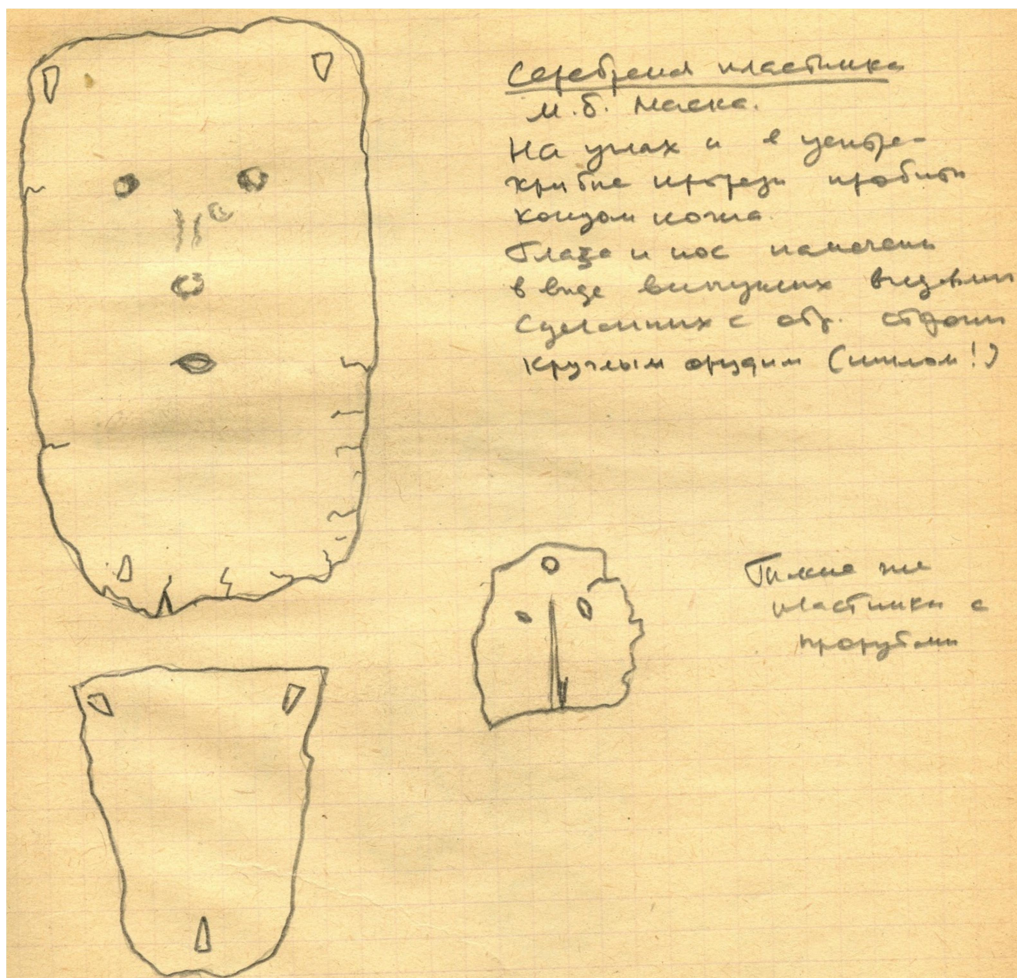 Серебреная пластинка
М.б. маска.
На углах и в
прорези пробиты
концом ножа
Глаза и нос намечены
в виде выпуклых
сделанных с обр. стороны
круглым орудим (шилом!)
Такие же
пластинки с